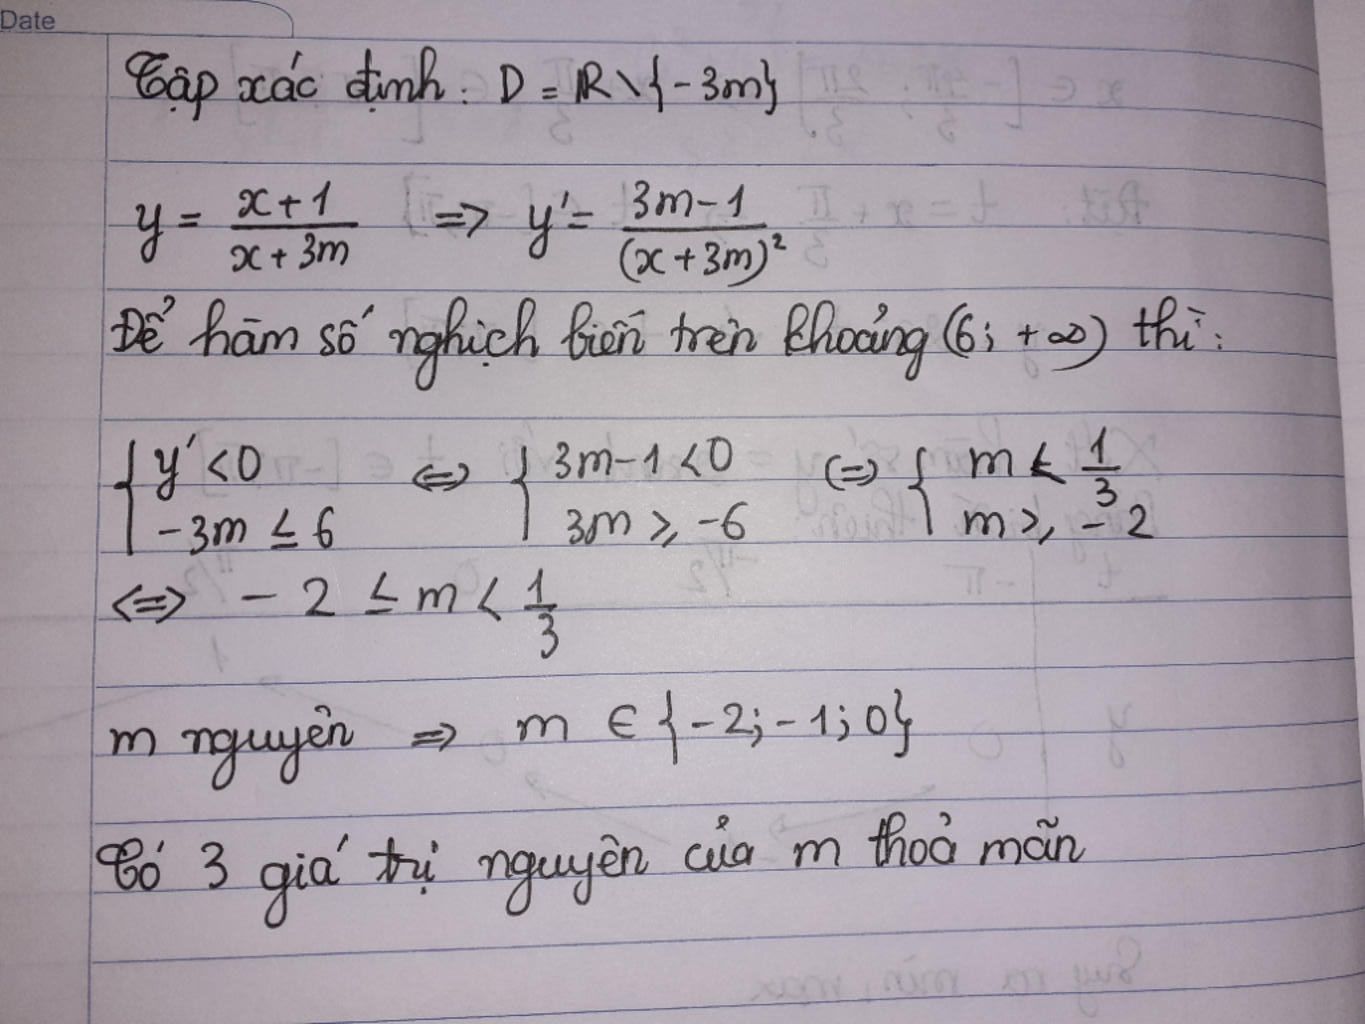 Date
Tập xác định: D = ℝ \ {-3m}
y = (x+1)/(x+3m) => y' = (3m-1)/(x+3m)²
Để hàm số nghịch biến trên khoảng (6; +∞) thì:
{ y' < 0 ; -3m ≤ 6 <=> { 3m-1 < 0 ; 3m ≥ -6 <=> { m < 1/3 ; m ≥ -2
<=> -2 ≤ m < 1/3
m nguyên => m ∈ {-2; -1; 0}
Có 3 giá trị nguyên của m thoả mãn